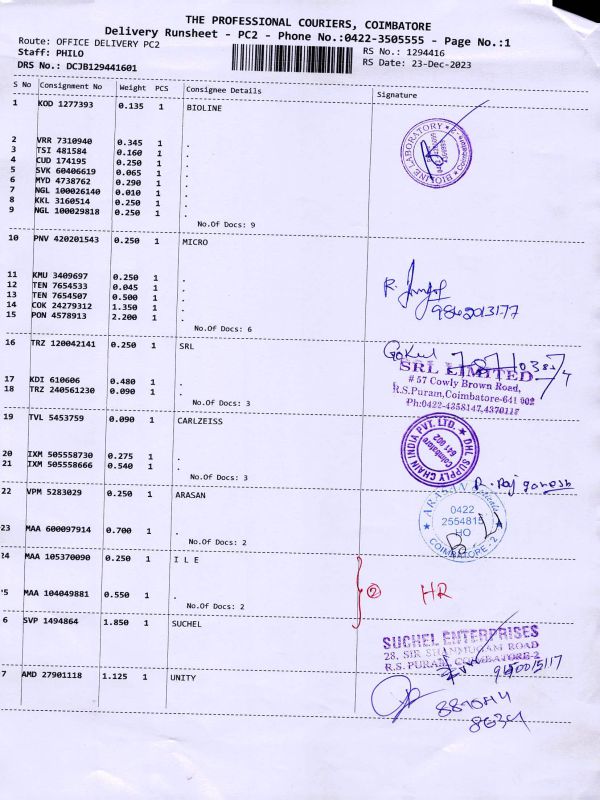 THE PROFESSIONAL COURIERS, COIMBATORE
Delivery Runsheet - PC2 - Phone No.:0422-3505555 - Page No.:1
Route: OFFICE DELIVERY PC2
RS No.: 1294416
Staff: PHILO
RS Date: 23-Dec-2023
DRS No.: DCJB129441601
S No Consignment No Weight PCS Consignee Details Signature
1 KOD 1277393 0.135 1 BIOLINE
BIOLINE LABORATORY
2 VRR 7310940 0.345 1 .
3 TSI 481584 0.160 1 .
4 CUD 174195 0.250 1 .
5 SVK 60406619 0.065 1 .
6 MYD 4738762 0.290 1 .
7 NGL 100026140 0.010 1 .
8 KKL 3160514 0.250 1 .
9 NGL 100029818 0.250 1 .
No.Of Docs: 9
10 PNV 420201543 0.250 1 MICRO
11 KMU 3409697 0.250 1 .
12 TEN 7654533 0.045 1 .
13 TEN 7654507 0.500 1 .
14 COK 24279312 1.350 1 .
15 PON 4578913 2.200 1 .
No.Of Docs: 6
16 TRZ 120042141 0.250 1 SRL
Gokul
SRL LIMITED
# 57 Cowly Brown Road,
R.S.Puram,Coimbatore-641 002
Ph:0422-4358147,4370117
17 KDI 610606 0.480 1 .
18 TRZ 240561230 0.090 1 .
No.Of Docs: 3
19 TVL 5453759 0.090 1 CARLZEISS
DHL SUPPLY CHAIN INDIA PVT. LTD.
Coimbatore
641 002
20 IXM 505558730 0.275 1 .
21 IXM 505558666 0.540 1 .
No.Of Docs: 3
R. Raj ganesh
22 VPM 5283029 0.250 1 ARASAN
0422
2554815
HO
COIMBATORE - 2
23 MAA 600097914 0.700 1 .
No.Of Docs: 2
24 MAA 105370090 0.250 1 I L E
② HR
5 MAA 104049881 0.550 1 .
No.Of Docs: 2
6 SVP 1494864 1.850 1 SUCHEL
SUCHEL ENTERPRISES
28, SIR SHANMUGAM ROAD
R.S. PURAM, COIMBATORE-2
7 AMD 27901118 1.125 1 UNITY